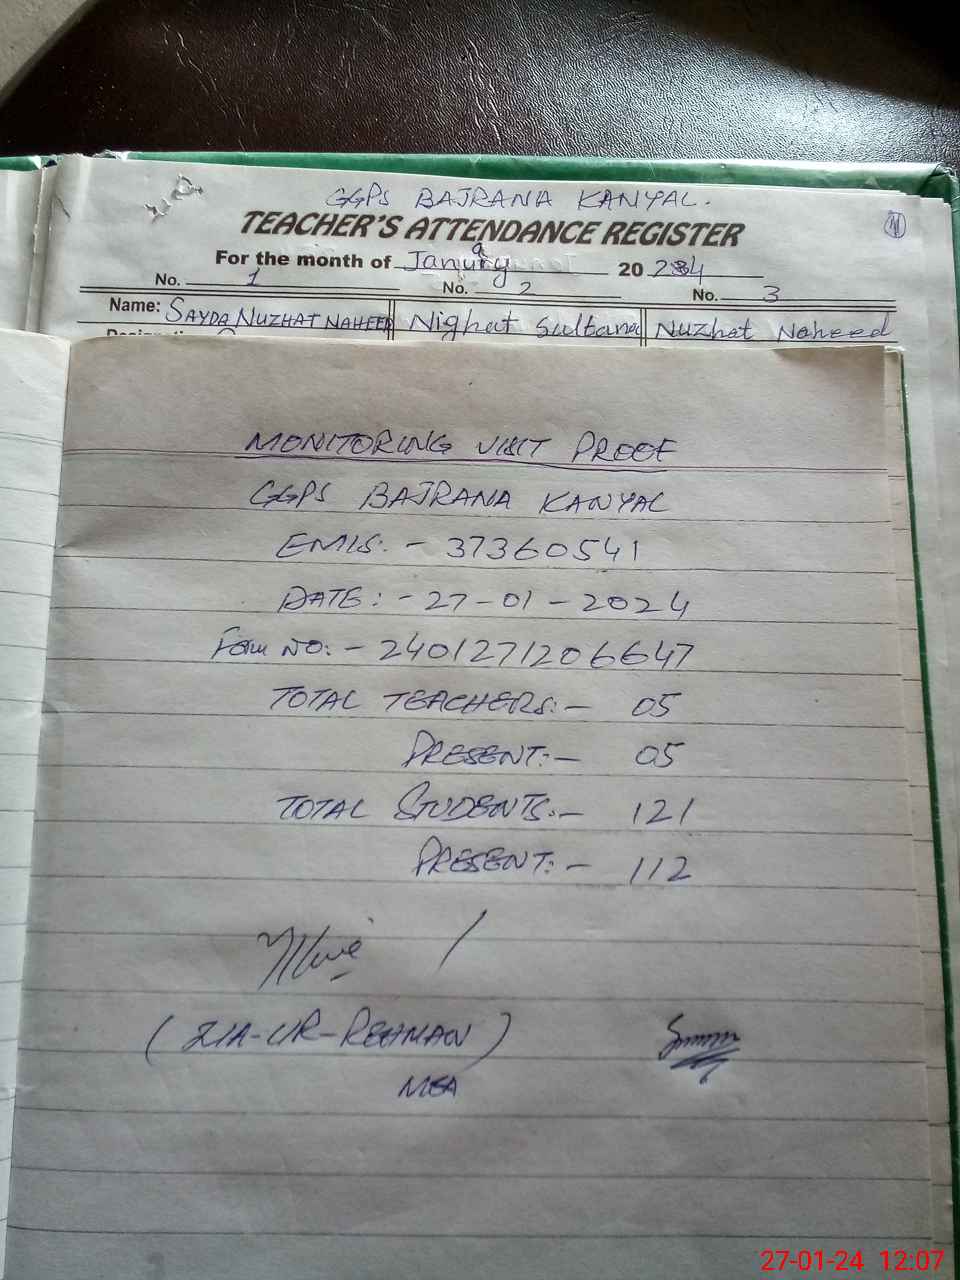 GGPS BAJRANA KANYAL.
TEACHER'S ATTENDANCE REGISTER
For the month of January 2024
No. 1 No. 2 No. 3
Name: SAYDA NUZHAT NAHEED Nighat Sultana Nuzhat Naheed
MONITORING VISIT PROOF
GGPS BAJRANA KANYAL
EMIS:- 37360541
DATE:- 27-01-2024
Form NO:- 2401271206647
TOTAL TEACHERS:- 05
PRESENT:- 05
TOTAL STUDENTS:- 121
PRESENT:- 112
(ZIA-UR-REHMAN)
MEA
27-01-24 12:07